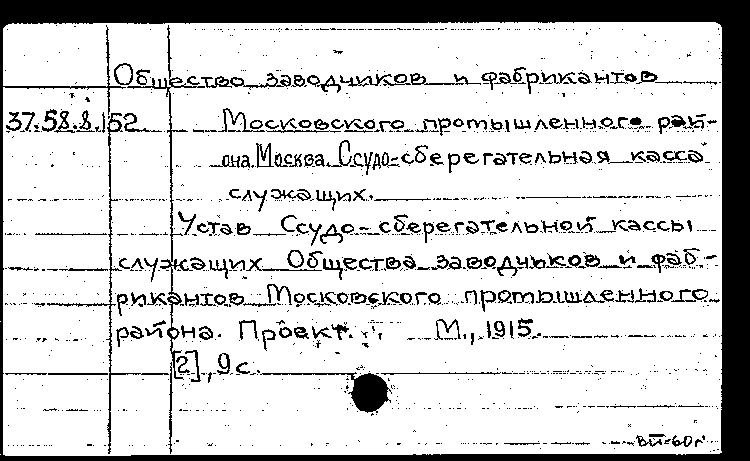 Общество заводчиков и фабрикантов
37.58.8.152. Московского промышленного рай-
она, Москва. Ссудо-сберегательная касса
служащих.
Устав Ссудо-сберегательной кассы
служащих Общества заводчиков и фаб-
рикантов Московского промышленного
района. Проект. М., 1915.
[2], 9 с.